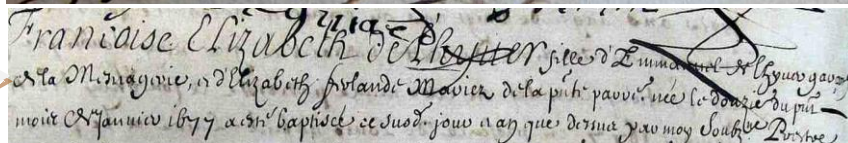 Francoise Elizabeth de fille d'Emmanuel de
de la Mesnagerie, et d'Elizabeth mariez de la pñte parr̃e. née le douzie du pñt
mois de Janvier 1677 a esté baptisée ce suod. jour et an que dessus par moy soubz. Prestre